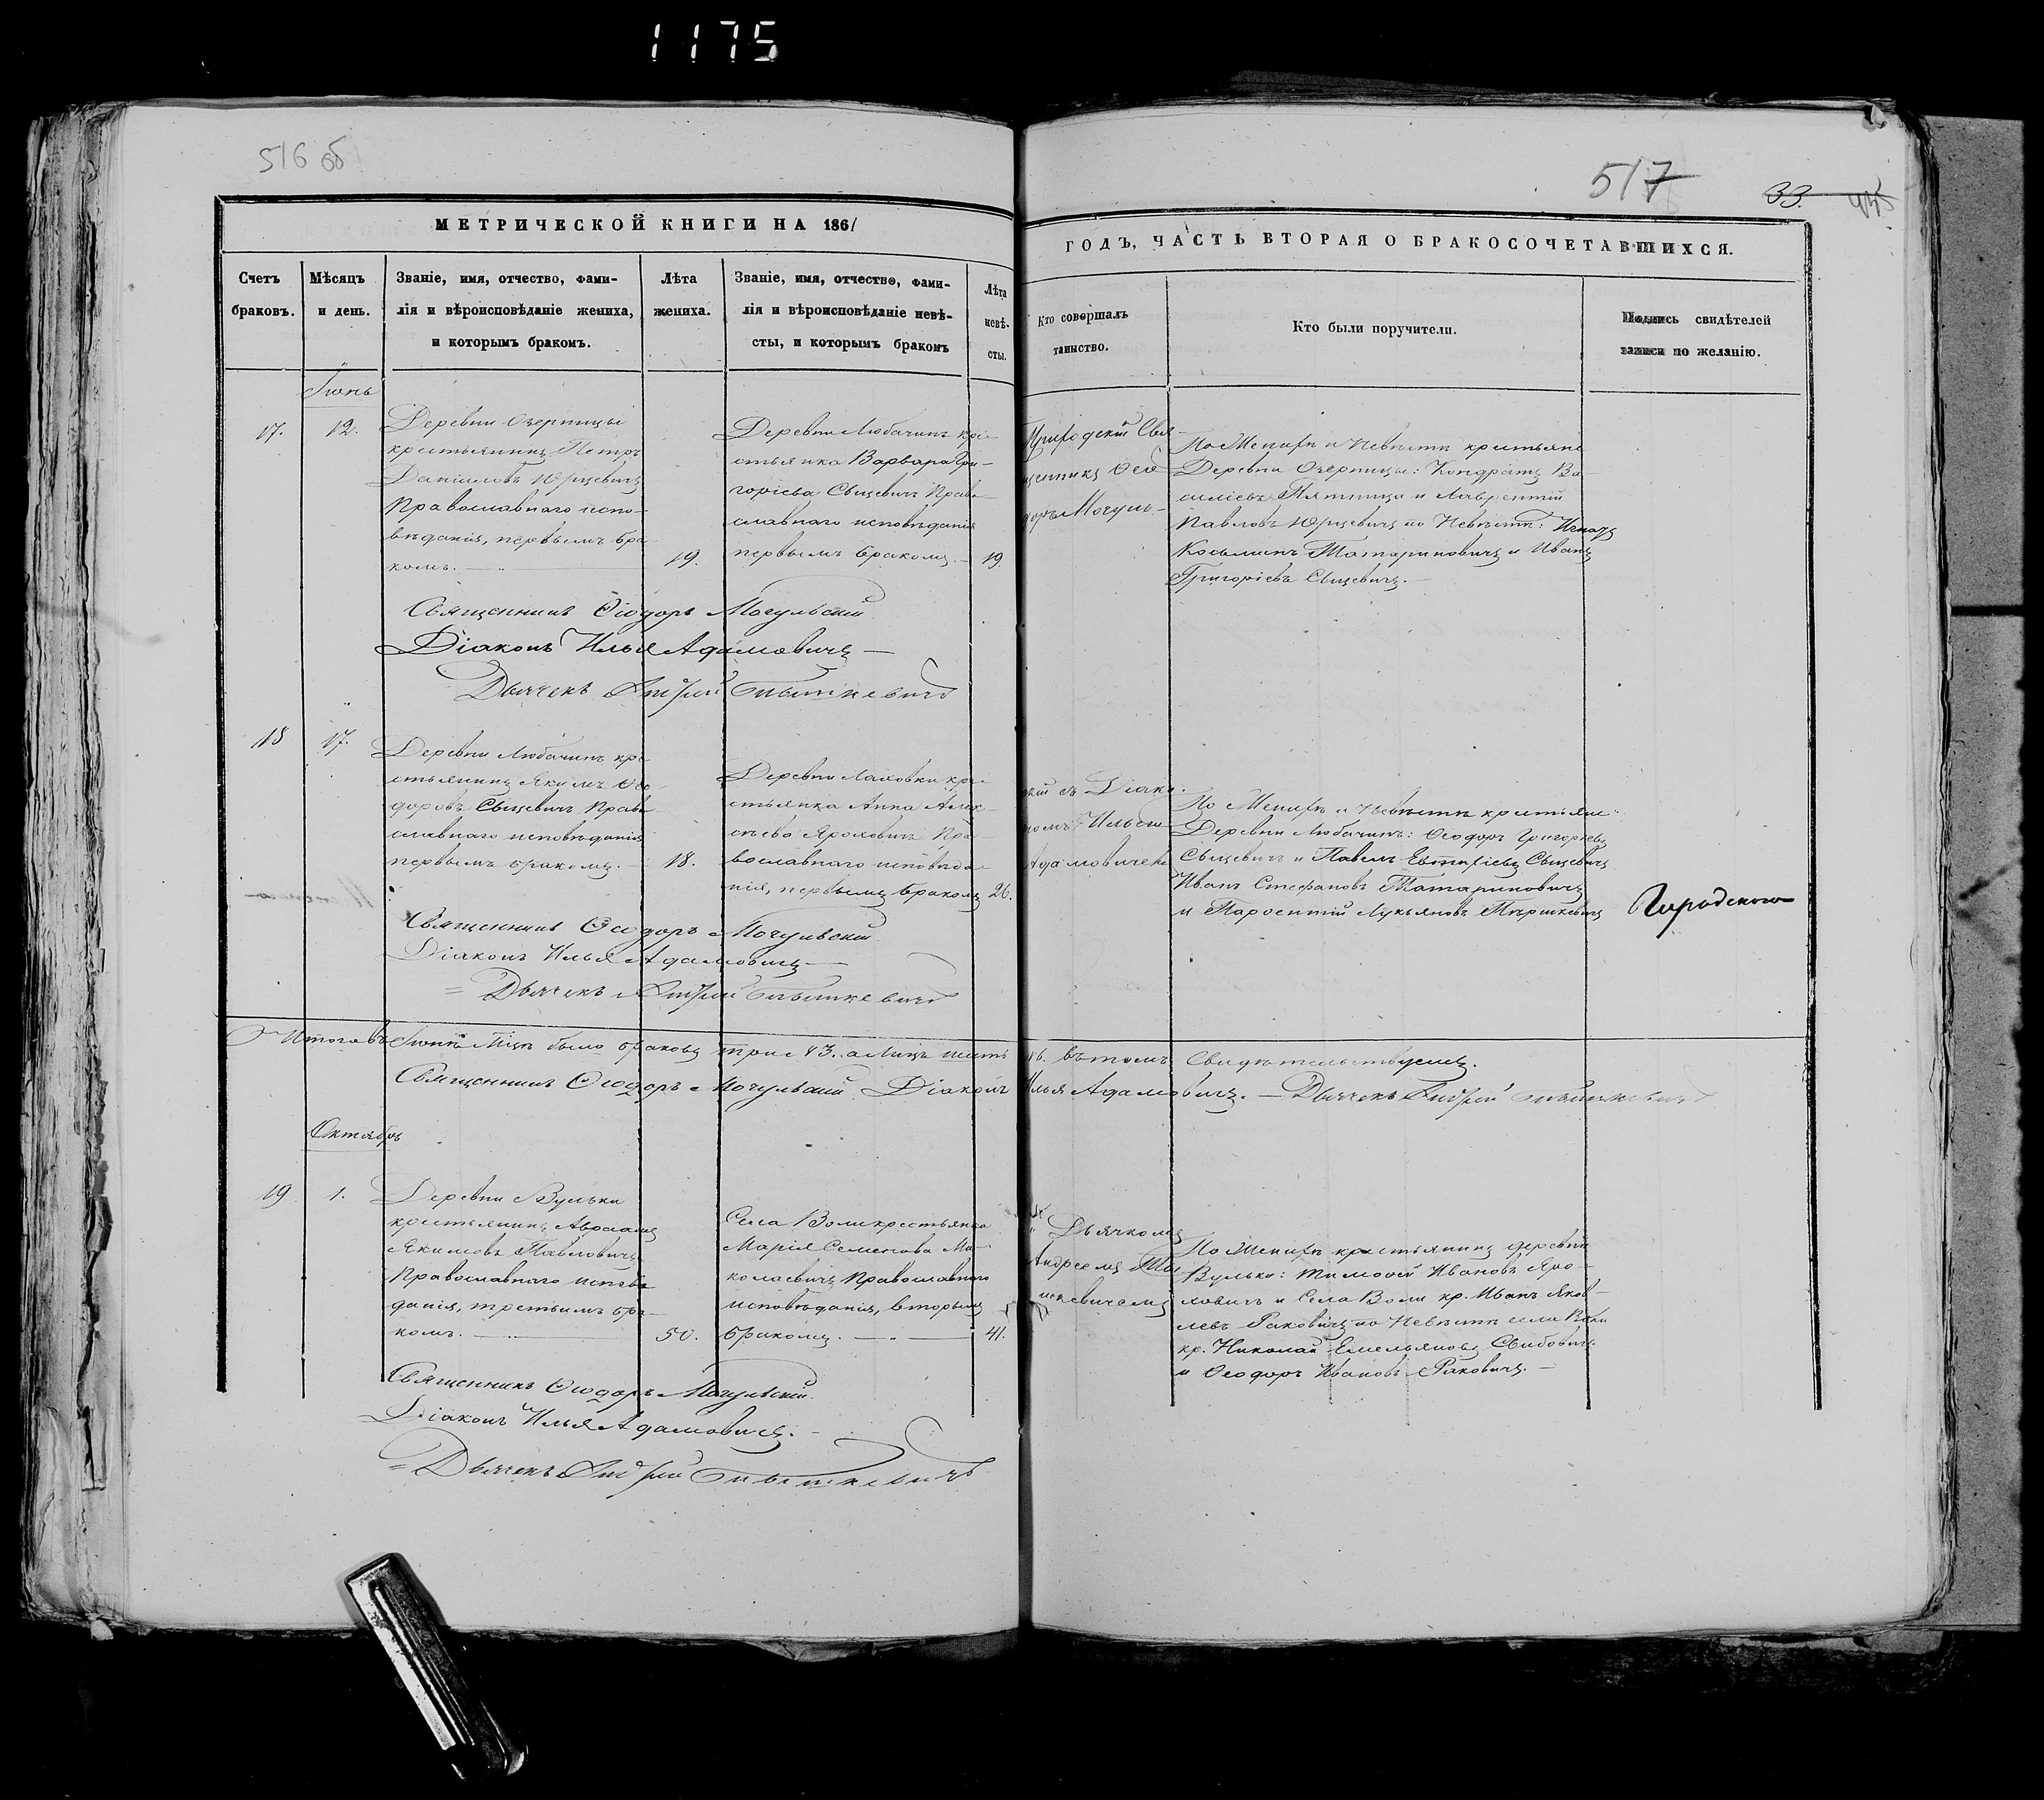 1175
516 об
517
33.
МЕТРИЧЕСКОЙ КНИГИ НА 1861
ГОДЪ, ЧАСТЬ ВТОРАЯ О БРАКОСОЧЕТАВШИХСЯ.
Счетъ
браковъ.
Мѣсяцъ
и день.
Званіе, имя, отчество, фами-
лія и вѣроисповѣданіе жениха,
и которымъ бракомъ.
Лѣта
жениха.
Званіе, имя, отчество, фами-
лія и вѣроисповѣданіе невѣ-
сты, и которымъ бракомъ
Лѣта
невѣ-
сты.
Кто совершалъ
таинство.
Кто были поручители.
Подпись свидѣтелей
записи по желанію.
Іюнь
17.
12.
Деревни Озерницы
крестьянинъ Петръ
Даніиловъ Юрцевичъ
Православнаго испо-
вѣданія, первымъ бра-
комъ.
19.
Деревни Любачинъ кре-
стьянка Варвара Гри-
горіева Свицевичъ Право-
славнаго исповѣданія
первымъ бракомъ.
19.
Приходскій Свя-
щенникъ Ѳео-
доръ Мочуль-
По Женихѣ и Невѣстѣ крестьяне
Деревни Озерницы: Кондратъ Ва-
силіевъ Пятница и Лаврентій
Павловъ Юрцевичъ по Невѣстѣ: Игнатъ
Косьминъ Татариновичъ и Иванъ
Григоріевъ Свицевичъ.
Священникъ Ѳеодоръ Мочульскій
Діаконъ Илья Адамовичъ
Дьячекъ Андрей
18
17.
Деревни Любачинъ кре-
стьянинъ Якимъ Ѳео-
доровъ Свицевичъ Право-
славнаго исповѣданія
первымъ бракомъ.
18.
Деревни Лаховки кре-
стьянка Анна Алек-
сѣева Яроховичъ Пра-
вославнаго исповѣда-
нія, первымъ бракомъ
26.
скій съ Діако-
номъ Ильею
Адамовичемъ
По Женихѣ и Невѣстѣ крестьяне:
Деревни Любачинъ: Ѳеодоръ Григоріевъ
Свицевичъ и Павелъ Евтихіевъ Свицевичъ
Иванъ Стефановъ Татариновичъ
и Лукьяновъ
Священникъ Ѳеодоръ Мочульскій
Діаконъ Илья Адамовичъ
Дьячекъ Андрей
Итого въ Іюнѣ Мцѣ было браковъ три 3. а Лицъ шесть
6. въ томъ Свидѣтельствуемъ.
Священникъ Ѳеодоръ Мочульскій Діаконъ
Илья Адамовичъ. Дьячекъ Андрей
Октябрь
19
1.
Деревни Вульки
крестьянинъ Авраамъ
Якимовъ Павловичъ
Православнаго исповѣ-
данія, третьимъ бра-
комъ.
50.
Села Воли крестьянка
Марія Семенова Ми-
колаевичъ Православнаго
исповѣданія, вторымъ
бракомъ.
41.
Дьячкомъ
Андреемъ
По Женихѣ крестьянинъ деревни
Вульки: Тимоѳей Ивановъ Яро-
ховичъ и Села Воли кр. Иванъ Яков-
левъ Раковичъ по Невѣстѣ села Воли
кр. Николай Емельяновъ Свибовичъ
и Ѳеодоръ Ивановъ Раковичъ.
Священникъ Ѳеодоръ Мочульскій.
Діаконъ Илья Адамовичъ.
Дьячекъ Андрей